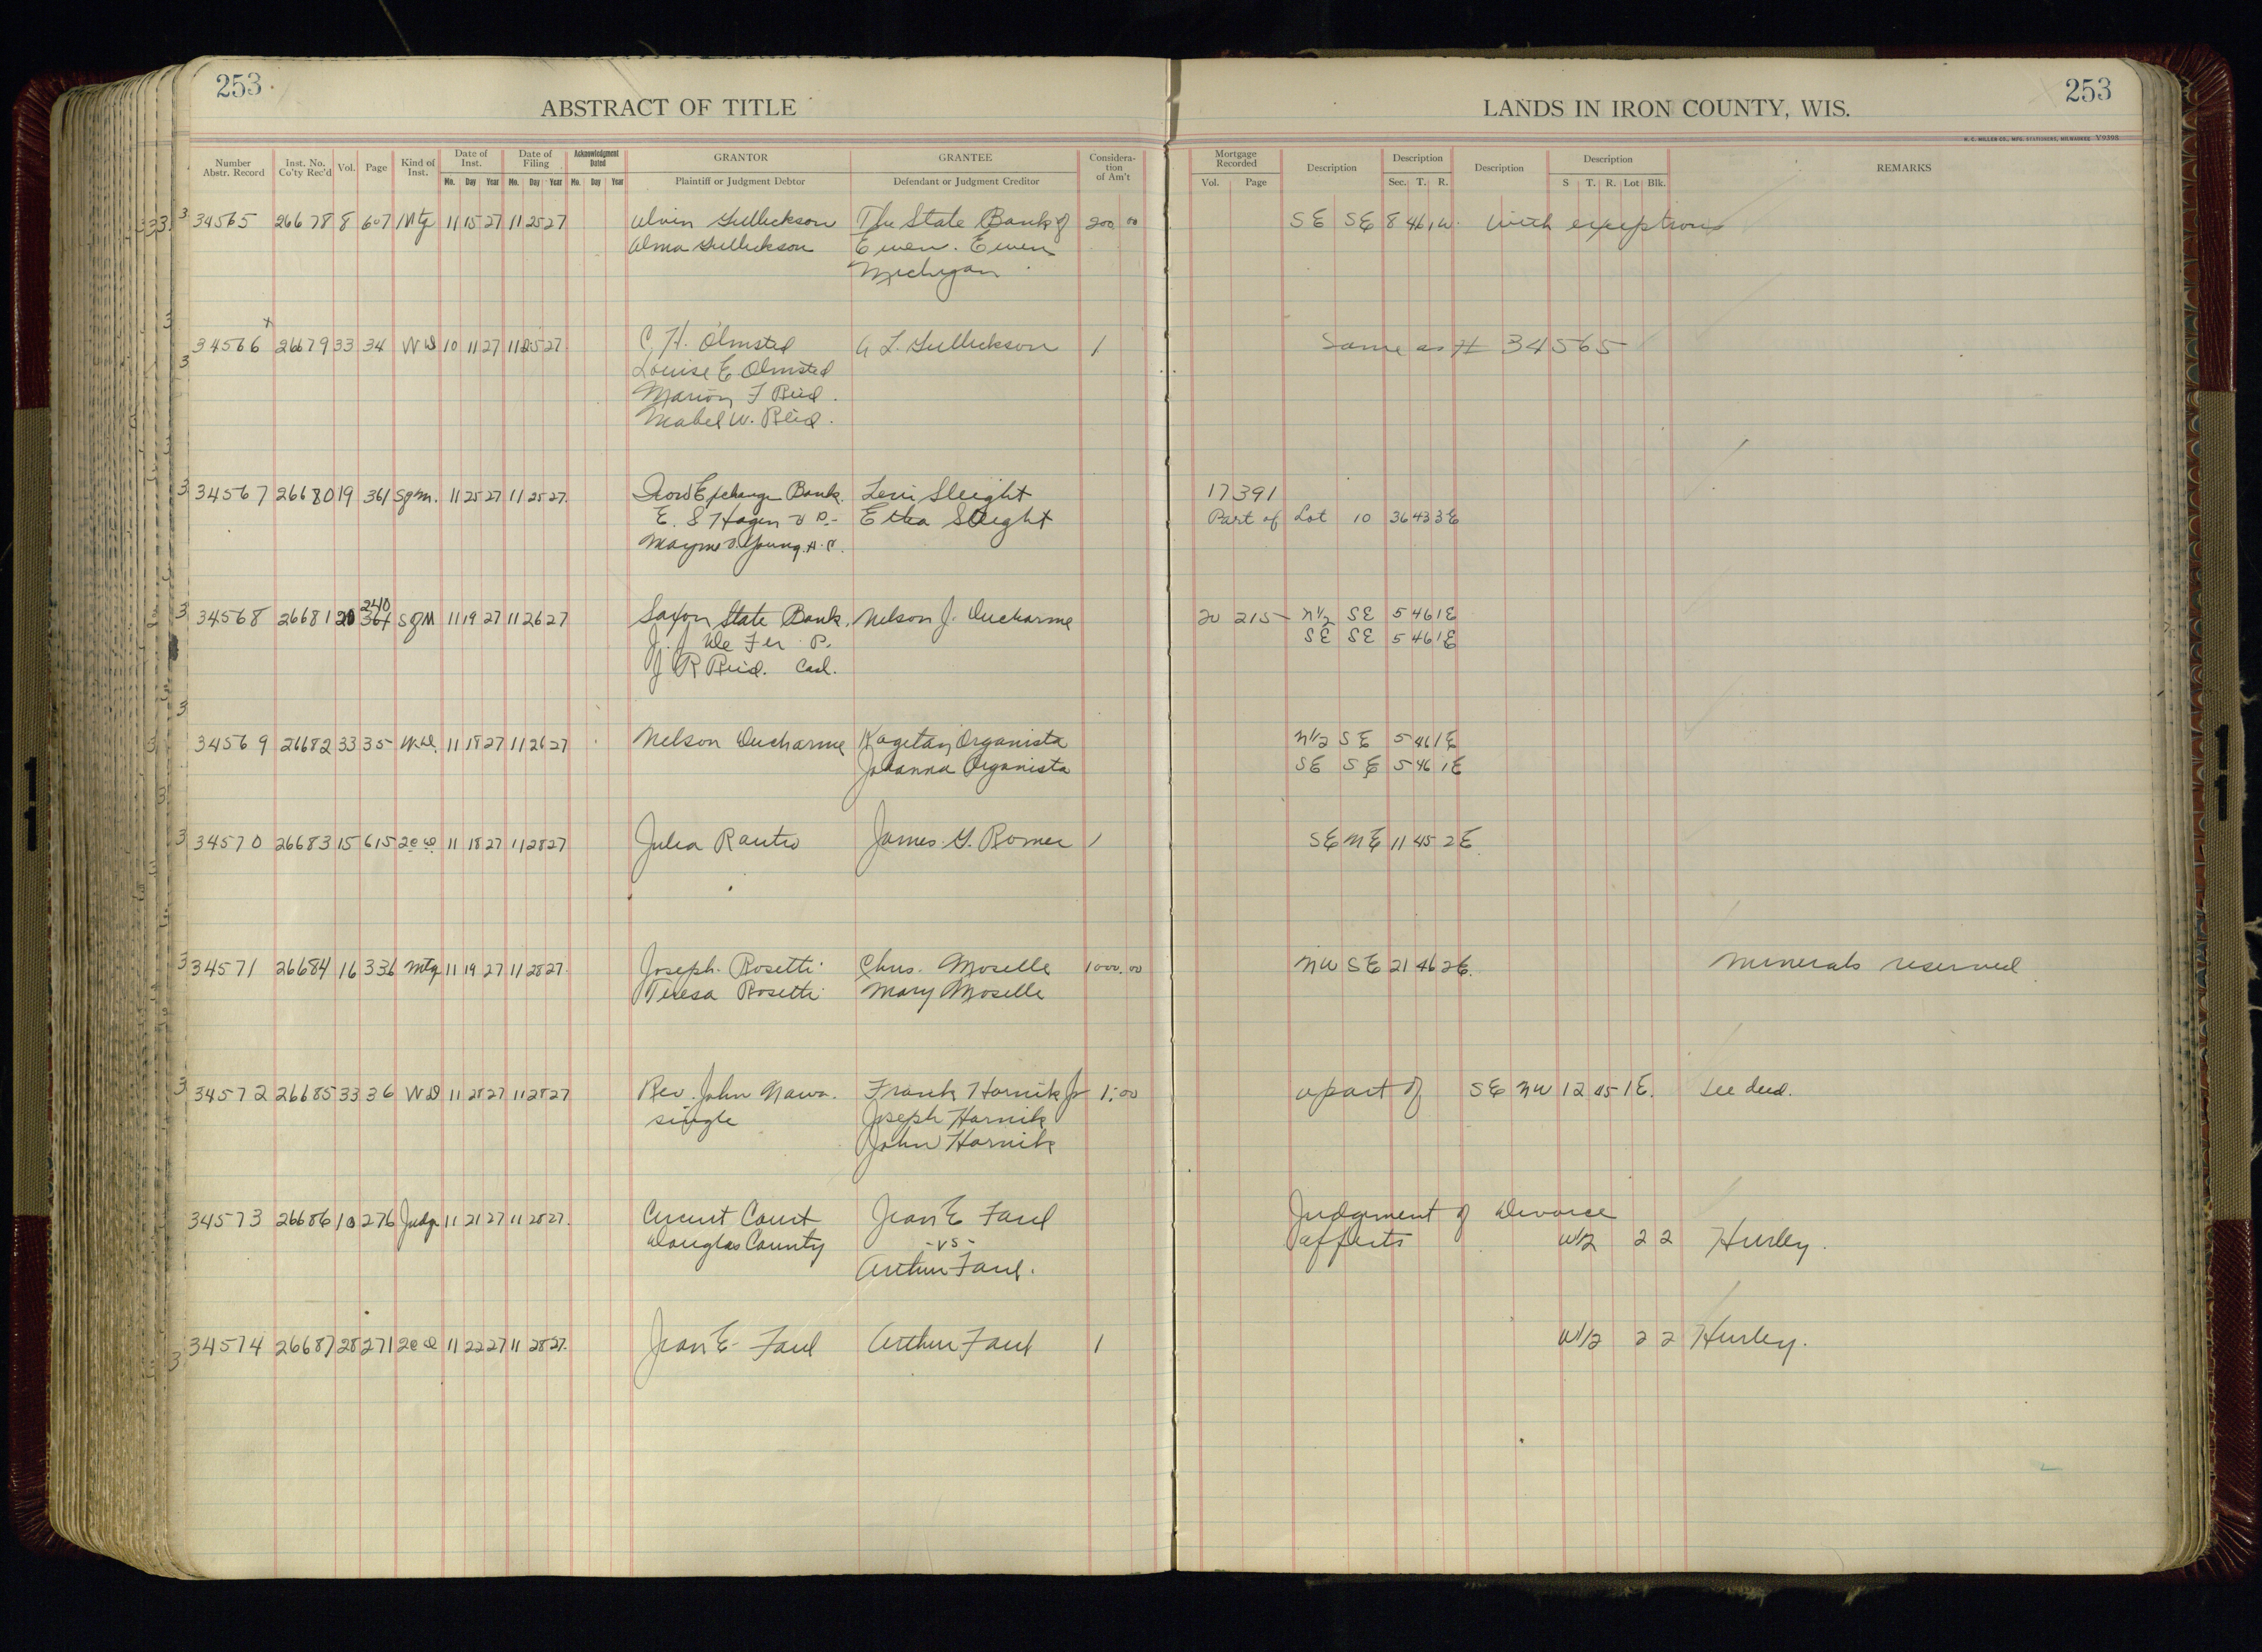 253
ABSTRACT OF TITLE
LANDS IN IRON COUNTY, WIS.
253
H. C. MILLER CO., MFG. STATIONERS, MILWAUKEE V9395
Number Abstr. Record Inst. No. Co'ty Rec'd Vol. Page Kind of Inst. Date of Inst. Date of Filing Acknowledgment Dated GRANTOR GRANTEE Considera-tion of Am't Mortgage Recorded Description Description Description Description REMARKS
Mo. Day Year Mo. Day Year Mo. Day Year Plaintiff or Judgment Debtor Defendant or Judgment Creditor Vol. Page Sec. T. R. S T. R. Lot Blk.
34565 26678 8 607 Mtg 11 15 27 11 25 27 Alvin Gullickson The State Bank of 200 00 SE SE 8 46 1W. with exceptions
Alma Gullickson Ewen. Ewen
Michigan
34566 26679 33 34 WD 10 11 27 11 25 27 C. H. Olmsted A L. Gullickson 1 Same as # 34565
Louise E. Olmsted
Marion F Reid.
Mabel W. Reid.
34567 26680 19 361 Sgm. 11 25 27 11 25 27. Iron Exchange Bank. Levi Sleight 17 391
E. S Hagen V P.- Etha Sleight Part of Lot 10 36 43 3E
Mayme Young A. C.
34568 26681 20 240 SgM 11 19 27 11 26 27 Saxon State Bank. Nelson J. Ducharme 20 215 N1/2 SE 5 46 1E
J. J. De Fer P. SE SE 5 46 1E
J R Reid. Cash.
34569 26682 33 35 W.D. 11 18 27 11 26 27 Nelson Ducharme Kagetan Organista N1/2 SE 5 46 1E
Johanna Organista SE SE 5 46 1E
34570 26683 15 615 2cD 11 18 27 11 28 27 Julia Rautio James G. Romer 1 SE NE 11 45 2E.
34571 26684 16 336 Mtg 11 19 27 11 28 27. Joseph Rosetti Chris. Moselle 1000.00 NW SE 21 46 2E. Minerals reserved
Teresa Rosetti Mary Moselle
34572 26685 33 36 WD 11 28 27 11 28 27 Rev. John Nawa. Frank Harnik Jr 1.00 a part of SE NW 12 45 1E. See deed.
single Joseph Harnik
John Harnik
34573 26686 10 276 Judg 11 21 27 11 28 27. Circuit Court Jean E Faul Judgment of Divorce
Douglas County -vs- affects W1/2 2 2 Hurley.
Arthur Faul.
34574 26687 28 271 2cD 11 22 27 11 28 27. Jean E- Faul Arthur Faul 1 W1/2 2 2 Hurley.